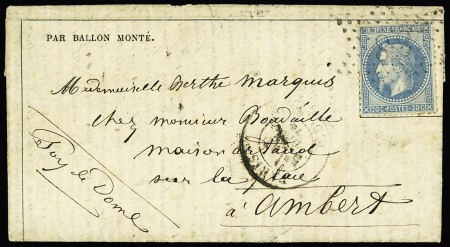 PAR BALLON MONTÉ.
EMPIRE FRANÇAIS
20C·POSTES·20C
Mademoiselle Berthe Marquis
chez monsieur Boudaille
maison
sur la place
à Ambert
Puy de Dome
PARIS